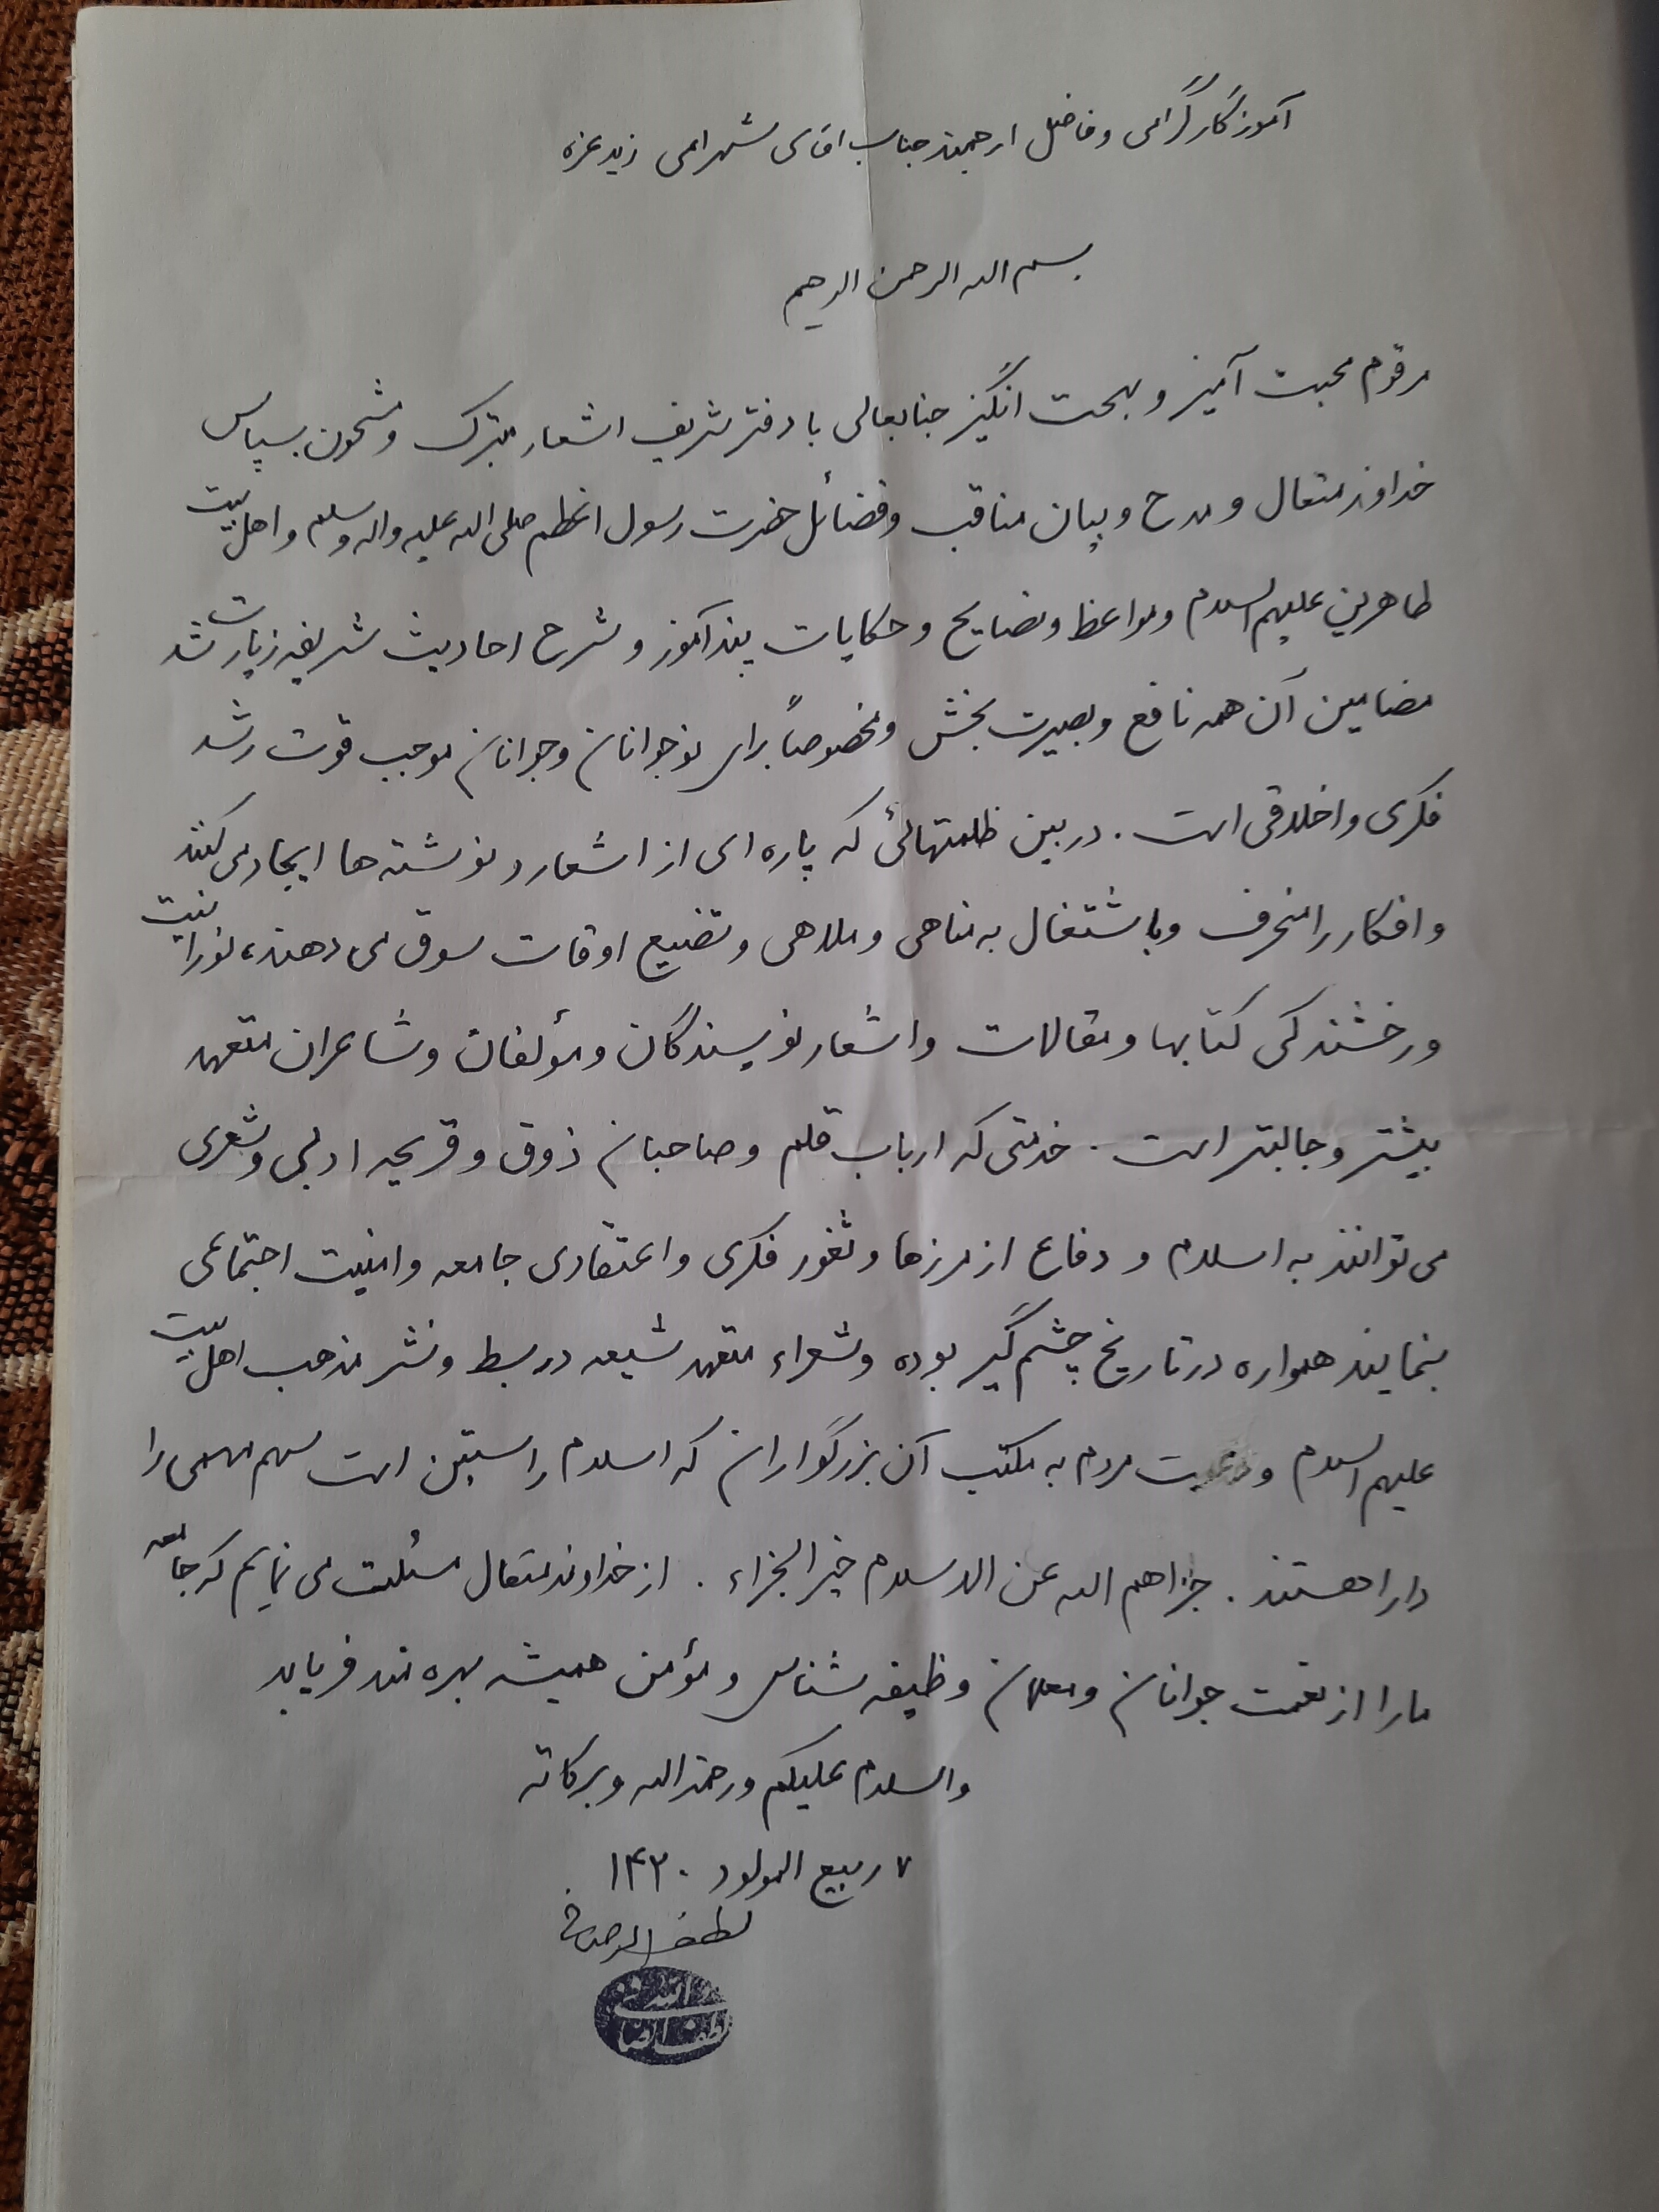 آموزگار گرامی و فاضل ارجمند جناب اقای شهرامی زید عزه
بسم الله الرحمن الرحیم
مرقوم محبت آمیز و بهجت انگیز جنابعالی با دفتر شریف اشعار متبرک و مشحون بسپاس
خداوند متعال و مدح و بیان مناقب و فضائل حضرت رسول اعظم صلی الله علیه و اله و سلم و اهل بیت
طاهرین علیهم السلام و مواعظ و نصایح و حکایات پندآموز و شرح احادیث شریفه زیارت شد
مضامین آن همه نافع و بصیرت بخش و مخصوصاً برای نوجوانان و جوانان موجب قوت رشد
فکری و اخلاقی است . در بین ظلمتهائی که پاره ای از اشعار و نوشته ها ایجاد می کنند
و افکار را منحرف و باشتغال به مناهی و ملاهی و تضییع اوقات سوق می دهند، نورانیت
و رخشندگی کتابها و مقالات و اشعار نویسندگان و مؤلفان و شاعران متعهد
بیشتر و جالبتر است . خدمتی که ارباب قلم و صاحبان ذوق و قریحه ادبی و شعری
می توانند به اسلام و دفاع از مرزها و ثغور فکری و اعتقادی جامعه و امنیت اجتماعی
بنمایند همواره در تاریخ چشم گیر بوده و شعراء متعهد شیعه در بسط و نشر مذهب اهل بیت
علیهم السلام و مردم به مکتب آن بزرگواران که اسلام راستین است سهم مهمی را
دارا هستند . جزاهم الله عن الاسلام خیر الجزاء . از خداوند متعال مسئلت می نمایم که جامعه
ما را از نعمت جوانان و معلمان وظیفه شناس و مؤمن همیشه بهره مند فرماید
والسلام علیکم و رحمة الله و برکاته
۷ ربیع المولود ۱۴۳۰
لطف الله صافی